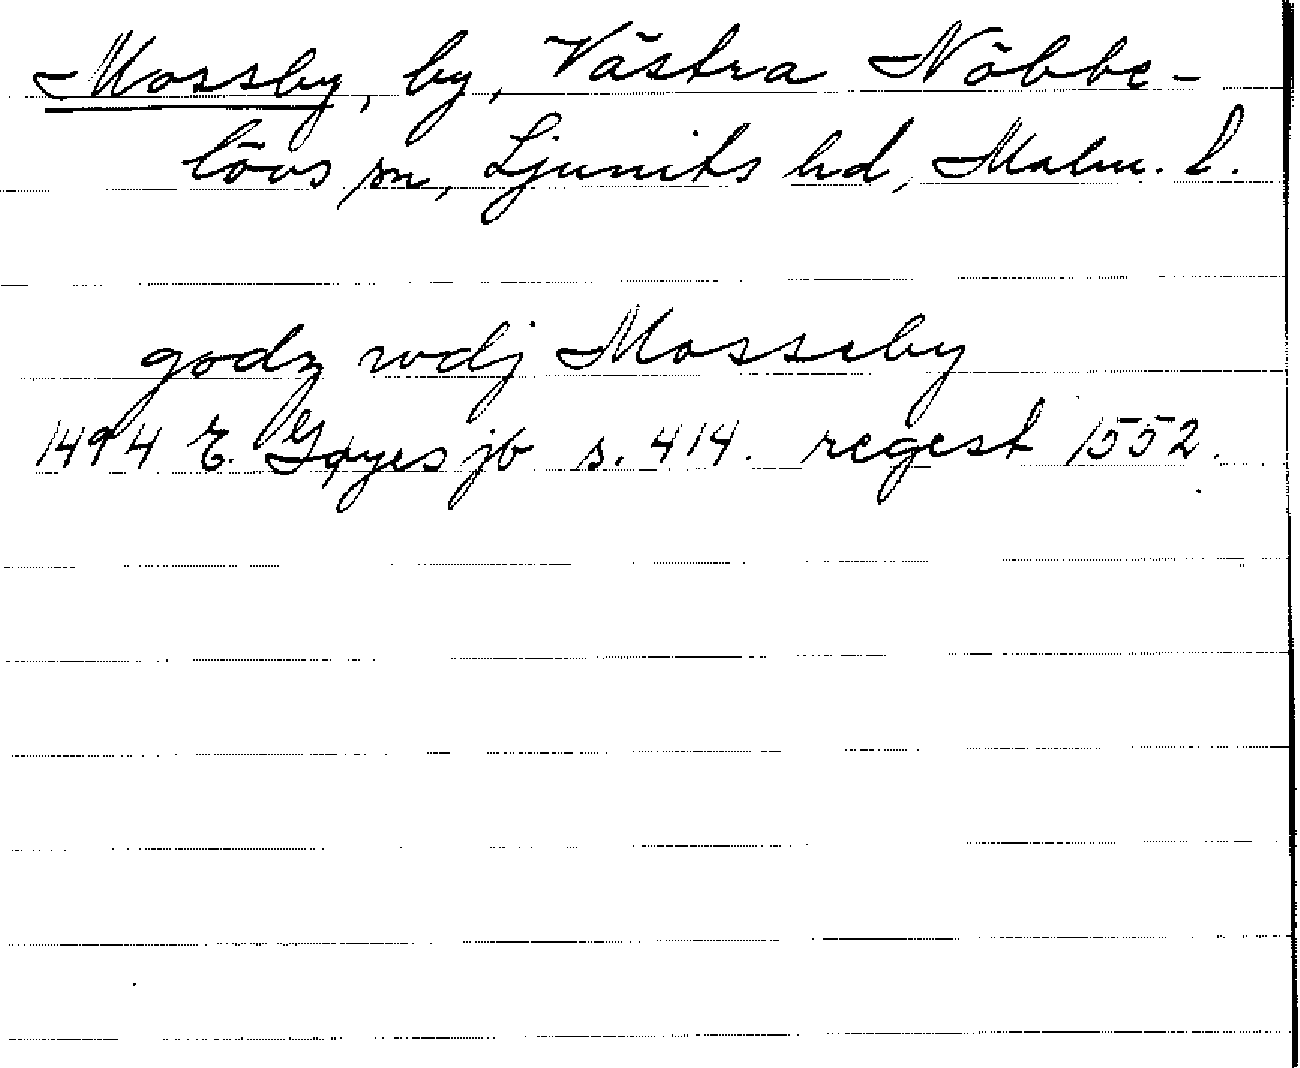 Mossby, by, Västra Nöbbe-
lövs sn, Ljunits hd, Malm. l.
godz wdj Mosseby
1494 E. Gøyes jb s. 414. regest 1552.